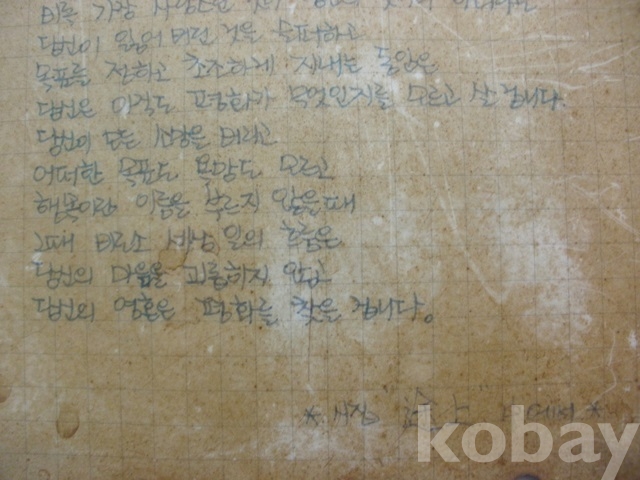 비록 가장 사랑스런 것이 당신의 것이 아니라면
당신이 잃어 버린 것을 슬퍼하고
목표를 정하고 초조하게 지내는 동안은
당신은 아직도 평화가 무엇인지를 모르고 살 겁니다.
당신이 모든 소망을 버리고
어떠한 목표도 욕망도 모르고
행복이란 이름을 부르지 않을 때
그때 비로소 세상 일의 흐름은
당신의 마음을 괴롭히지 않고
당신의 영혼은 평화를 찾을 겁니다.
* 시장 에서 *
kobay